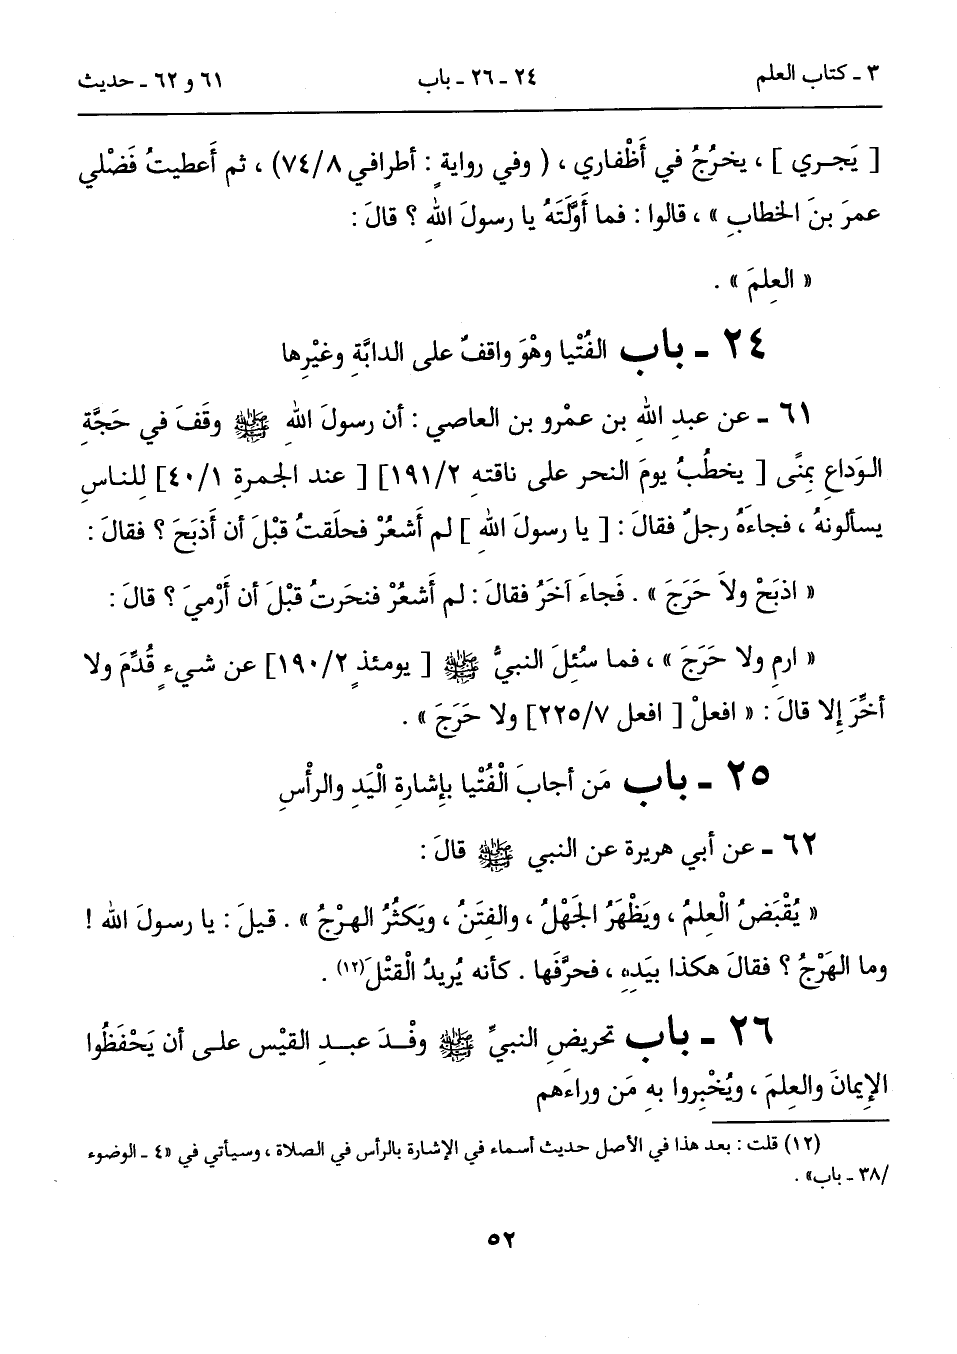 ٣ ـ كتاب العلم ٢٤ ـ ٢٦ ـ باب ٦١ و ٦٢ ـ حديث
[ يَجـري ] ، يخرُجُ في أَظْفاري ، ( وفي روايةٍ : أطرافي ٨/ ٧٤) ، ثم أَعطيتُ فَضْلي
عمرَ بنَ الخطابِ » ، قالوا : فما أَوَّلتَهُ يا رسولَ اللهِ ؟ قالَ :
« العِلمَ » .
٢٤ ـ باب الفُتْيا وهْوَ واقفٌ على الدابَّةِ وغيْرِها
٦١ ـ عن عبدِ اللهِ بن عمْرو بن العاصي : أن رسولَ اللهِ ﷺ وقَفَ في حَجَّةِ
الوَداعِ بِمنًى [ يخطُبُ يومَ النحر على ناقتهِ ٢/ ١٩١] [ عند الجمرةِ ١/ ٤٠] لِلناسِ
يسألونهُ ، فجاءَهُ رجلٌ فقالَ : [ يا رسولَ اللهِ ] لم أَشعُرْ فحلَقتُ قبْلَ أن أَذبَحَ ؟ فقالَ :
« اذبَحْ ولاَ حَرَجَ » . فَجاءَ آخَرُ فقالَ : لم أَشعُرْ فنحَرتُ قبْلَ أن أَرْميَ ؟ قالَ :
« ارمِ ولا حَرَجَ » ، فما سُئِلَ النبيُّ ﷺ [ يومئذٍ ٢/ ١٩٠] عن شيءٍ قُدِّمَ ولا
أخِّرَ إلا قالَ : « افعلْ [ افعل ٧/ ٢٢٥] ولا حَرَجَ » .
٢٥ ـ باب مَن أجابَ الْفُتْيا بإشارةِ الْيَدِ والرأْسِ
٦٢ ـ عن أبي هريرة عن النبي ﷺ قالَ :
« يُقْبَضُ الْعِلمُ ، ويَظْهَرُ الجَهْلُ ، والفِتَنُ ، ويَكثُرُ الهرْجُ » . قيلَ : يا رسولَ الله !
وما الهَرْجُ ؟ فقالَ هكذا بيَدِهِ ، فحرَّفَها . كأنه يُريدُ الْقتْلَ(١٢) .
٢٦ ـ باب تحريضِ النبيِّ ﷺ وفْـدَ عبـدِ القيْس علـى أن يَحْفَظُوا
الإيمانَ والعِلمَ ، ويُخْبِروا بهِ مَن وراءَهم
(١٢) قلت : بعد هذا في الأصل حديث أسماء في الإشارة بالرأس في الصلاة ، وسيأتي في «٤ ـ الوضوء
/٣٨ ـ باب» .
٥٢